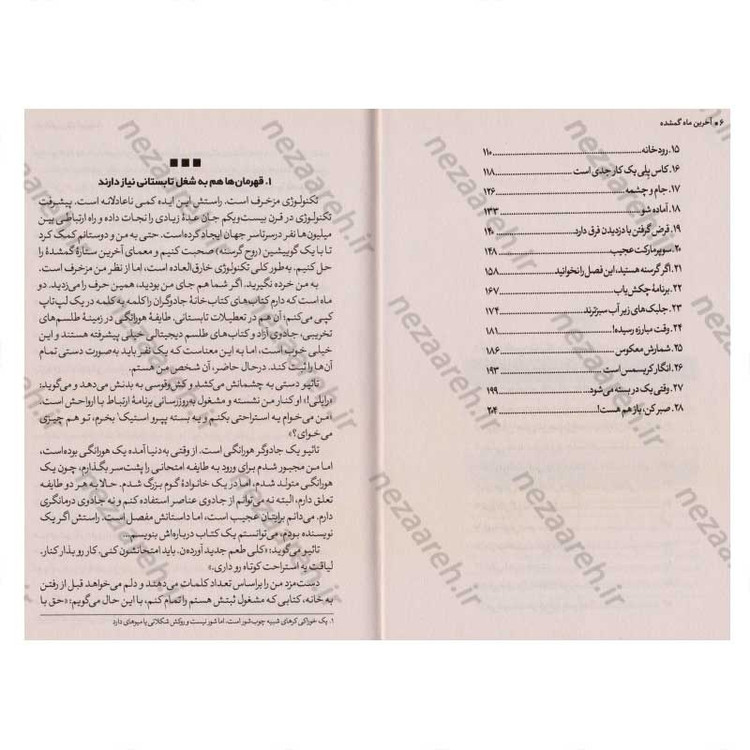 ۶ ■ آخرین ماه گمشده
۱۵. رودخانه ۱۱۰
۱۶. کاس پلی یک کار جدی است ۱۱۸
۱۷. جام و چشمه ۱۲۶
۱۸. آماده شو ۱۳۳
۱۹. قرض گرفتن با دزدیدن فرق دارد ۱۴۰
۲۰. سوپرمارکت عجیب ۱۴۸
۲۱. اگر گرسنه هستید، این فصل را نخوانید ۱۵۸
۲۲. برنامهٔ چکش‌یاب ۱۶۷
۲۳. جلبک‌های زیر آب سبزترند ۱۷۴
۲۴. وقت مبارزه رسیده! ۱۸۱
۲۵. شمارش معکوس ۱۸۶
۲۶. انگار کریسمس است ۱۹۳
۲۷. وقتی یک در بسته می‌شود ۱۹۹
۲۸. صبر کن، باز هم هست! ۲۰۴
■ ■ ■
۱. قهرمان‌ها هم به شغل تابستانی نیاز دارند
تکنولوژی مزخرف است. راستش این ایده کمی ناعادلانه است. پیشرفت
تکنولوژی در قرن بیست‌ویکم جان عدهٔ زیادی را نجات داده و راه ارتباطی بین
میلیون‌ها نفر در سرتاسر جهان ایجاد کرده است. حتی به من و دوستانم کمک کرد
تا با یک گوییشین (روح گرسنه) صحبت کنیم و معمای آخرین ستارهٔ گمشده را
حل کنیم. به‌طور کلی تکنولوژی خارق‌العاده است، اما از نظر من مزخرف است.
به من خرده نگیرید. اگر شما هم جای من بودید، همین حرف را می‌زدید. دو
ماه است که دارم کتاب‌های کتاب‌خانهٔ جادوگران را کلمه به کلمه در یک لپ‌تاپ
کپی می‌کنم؛ آن هم در تعطیلات تابستانی. طایفهٔ هورانگی در زمینهٔ طلسم‌های
تخریبی، جادوی آزاد و کتاب‌های طلسم دیجیتالی خیلی پیشرفته هستند و این
خیلی خوب است، اما به این معناست که یک نفر باید به‌صورت دستی تمام
آن‌ها را ثبت کند. درحال حاضر، آن شخص من هستم.
تائیو دستی به چشمانش می‌کشد و کش‌وقوسی به بدنش می‌دهد و می‌گوید:
«رایلی!» او کنار من نشسته و مشغول به‌روزرسانی برنامهٔ ارتباط با ارواحش است.
«من می‌خوام یه استراحتی بکنم و یه بسته پپرو استیک۱ بخرم، تو هم چیزی
می‌خوای؟»
تائیو یک جادوگر هورانگی است. از وقتی به‌دنیا آمده یک هورانگی بوده‌است،
اما من مجبور شدم برای ورود به طایفه امتحانی را پشت‌سر بگذارم، چون یک
هورانگی متولد شدم، اما در یک خانوادهٔ گوم بزرگ شدم. حالا به هر دو طایفه
تعلق دارم، البته نه می‌توانم از جادوی عناصر استفاده کنم و نه جادوی درمانگری
دارم. می‌دانم برایتان عجیب است، اما داستانش مفصل است. راستش اگر یک
نویسنده بودم، می‌توانستم یک کتاب درباره‌اش بنویسم...
تائیو می‌گوید: «کلی طعم جدید آورده‌ن. باید امتحانشون کنی. کار رو بذار کنار.
لیاقت یه استراحت کوتاه رو داری.»
دست‌مزد من را براساس تعداد کلمات می‌دهند و دلم می‌خواهد قبل از رفتن
به خانه، کتابی که مشغول ثبتش هستم را تمام کنم، با این حال می‌گویم: «حق با
۱. یک خوراکی کره‌ای شبیه چوب‌شور است، اما شور نیست و روکش شکلاتی یا میوه‌ای دارد
nezaareh.ir